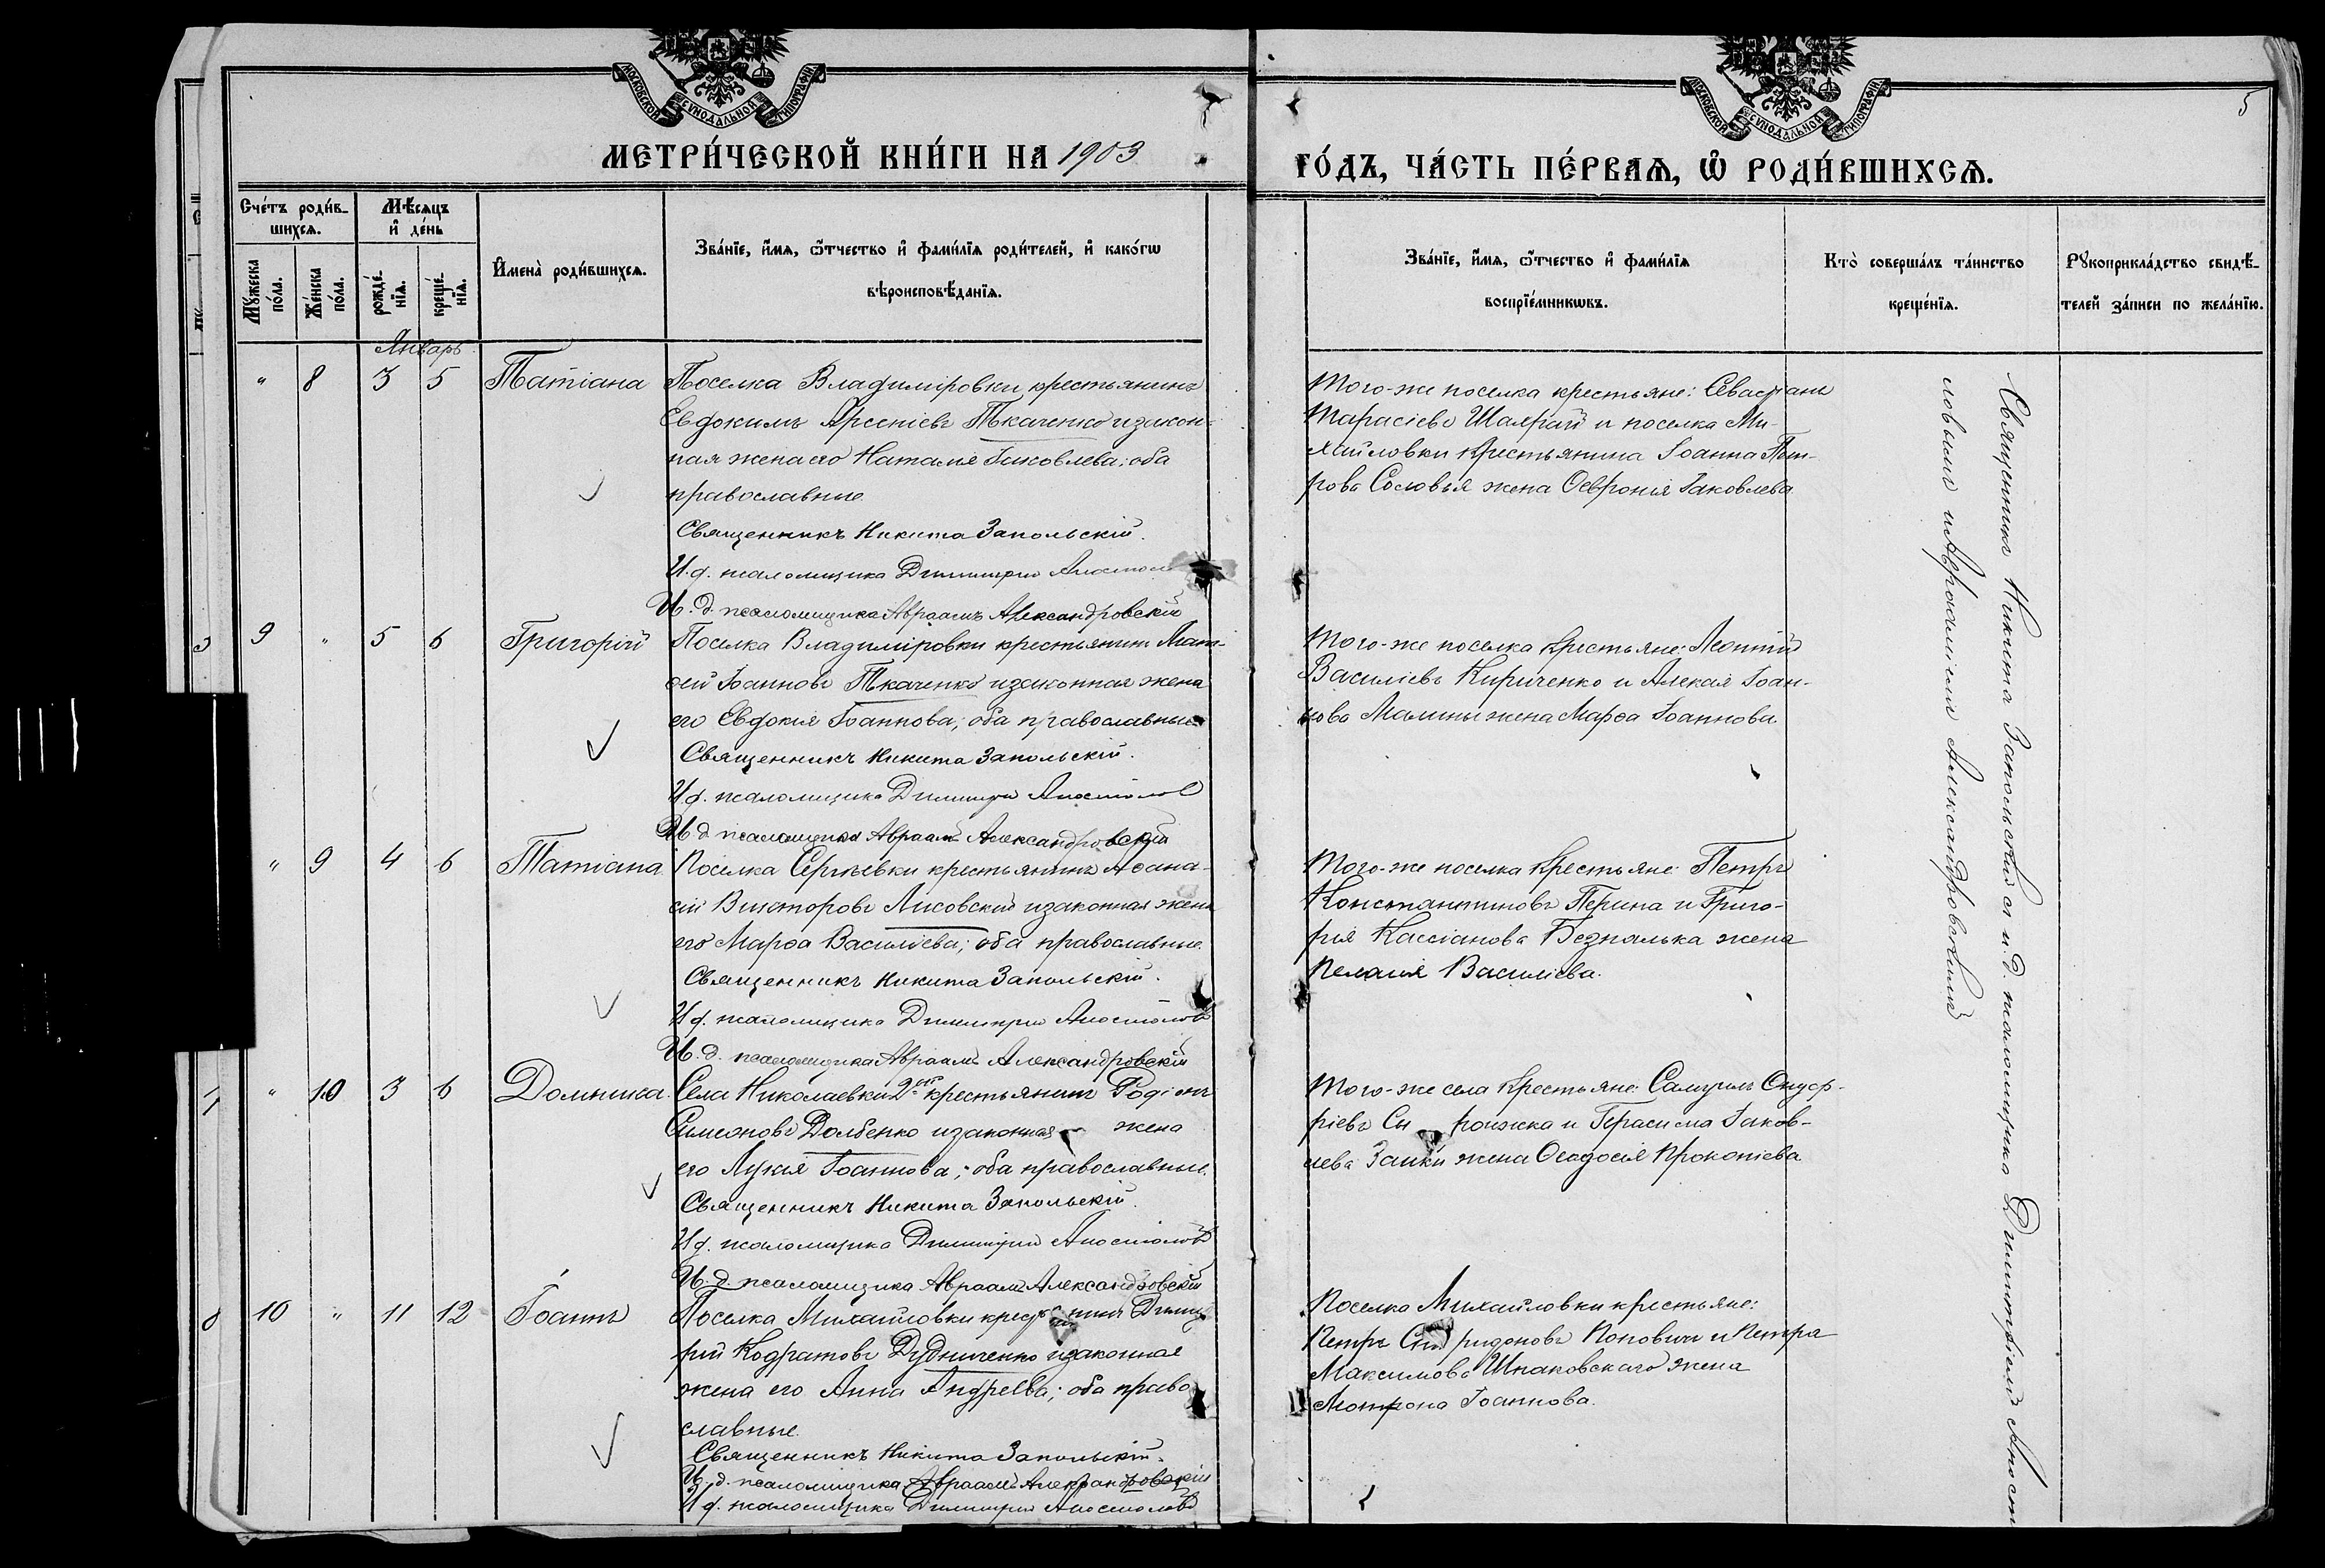 МОСКОВСКОЙ СѴНОДАЛЬНОЙ ТИПОГРАФІИ
МОСКОВСКОЙ СѴНОДАЛЬНОЙ ТИПОГРАФІИ
5
МЕТРИ́ЧЕСКОЙ КНИ́ГИ НА 1903
ГО́ДЪ, ЧА́СТЬ ПЕ́РВАѦ, Ѡ҆ РОДИ́ВШИХСѦ.
Сче́тъ роди́в-
шихсѧ.
Мꙋ́жеска
по́ла.
Же́нска
по́ла.
Мѣ́сѧцъ
и҆ де́нь
рожде́-
нїѧ.
креще́-
нїѧ.
И҆мена̀ роди́вшихсѧ.
Зва́нїе, и҆́мѧ, ѻ҆́тчество и҆ фами́лїѧ роди́телей, и҆ како́гѡ
вѣроисповѣ́данїѧ.
Зва́нїе, и҆́мѧ, ѻ҆́тчество и҆ фами́лїѧ
воспрїе́мникѡвъ.
Кто̀ соверша́лъ та́инство
креще́нїѧ.
Рꙋкоприкла́дство свидѣ́-
телей за́писи по жела́нїю.
Январь
" 8 3 5 Татіана
Поселка Владиміровки крестьянинъ
Евдокимъ Арсеніевъ Ткаченко и закон-
ная жена его Наталія Іаковлева; оба
православные
Священникъ Никита Запольскій.
И.д. псаломщика Димитрій
И.д. псаломщика Авраамъ Александровскій
Того-же поселка крестьяне: Севастіанъ
Тарасіевъ и поселка Ми-
хайловки крестьянина Іоанна Пет-
рова Соловья жена Ѳевронія Іаковлева
9 " 5 6 Григорій
Поселка Владиміровки крестьянинъ Мат-
ѳей Іоанновъ Ткаченко и законная жена
его Евдокія Іоаннова; оба православные
Священникъ Никита Запольскій.
И.д. псаломщика Димитрій Апостоловъ
И.д. псаломщика Авраамъ Александровскій
Того-же поселка крестьяне: Леонтій
Василіевъ Кириченко и Алексія Іоан-
нова Малины жена Марѳа Іоаннова
" 9 4 6 Татіана
Поселка Сергѣевки крестьянинъ Аѳана-
сій Викторовъ Лисовскій и законная жена
его Марѳа Василіева; оба православные.
Священникъ Никита Запольскій.
И.д. псаломщика Димитрій Апостоловъ
И.д. псаломщика Авраамъ Александровскій
Того-же поселка крестьяне: Петръ
Константиновъ Перина и Григо-
рія Кассіанова Безпалька жена
Пелагія Василіева.
" 10 3 6 Домника.
Села Николаевки 2ой крестьянинъ Родіонъ
Симеоновъ Долбенко и законная жена
его Лукія Іоаннова; оба православные.
Священникъ Никита Запольскій.
И.д. псаломщика Димитрій Апостоловъ
И.д. псаломщика Авраамъ Александровскій
Того-же села крестьяне: Самуилъ Онуф-
ріевъ и Герасима Іаков-
лева Заики жена Ѳеодосія Прокопіева
10 " 11 12 Іоаннъ
Поселка Михайловки крестьянинъ Димит-
рій Кодратовъ Дудниченко и законная
жена его Анна Андреева; оба право
славные.
Священникъ Никита Запольскій.
И.д. псаломщика Авраамъ Александровскій
И.д. псаломщика Димитрій Апостоловъ
Поселка Михайловки крестьяне:
Петръ Спиридоновъ Поповичъ и Петра
Максимова Шпаковскаго жена
Мотрона Іоаннова.
Священникъ Никита Запольскій съ и.д. псаломщика Димитріемъ Апост
ловымъ и Авраамомъ Александровскимъ